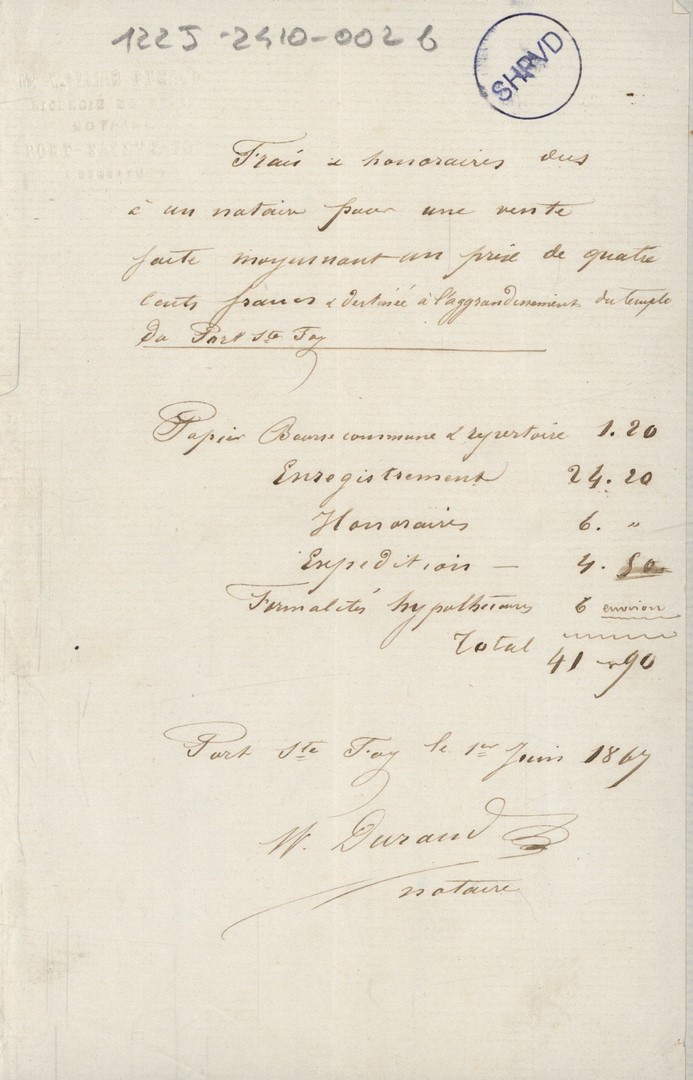 122J-2410-002 b
SHPVD
Frais & honoraires dus
à un notaire pour une vente
faite moyennant un prix de quatre
cents francs & destinée à l'aggrandissement du temple
du Port Ste Foy
Papier Bourse commune & repertoire 1.20
Enregistrement 24.20
Honoraires 6. "
Expedition — 4. 50
Formalités hypothécaires 6 environ
Total 41 90
Port Ste Foy le 1er Juin 1867
Durand
notaire